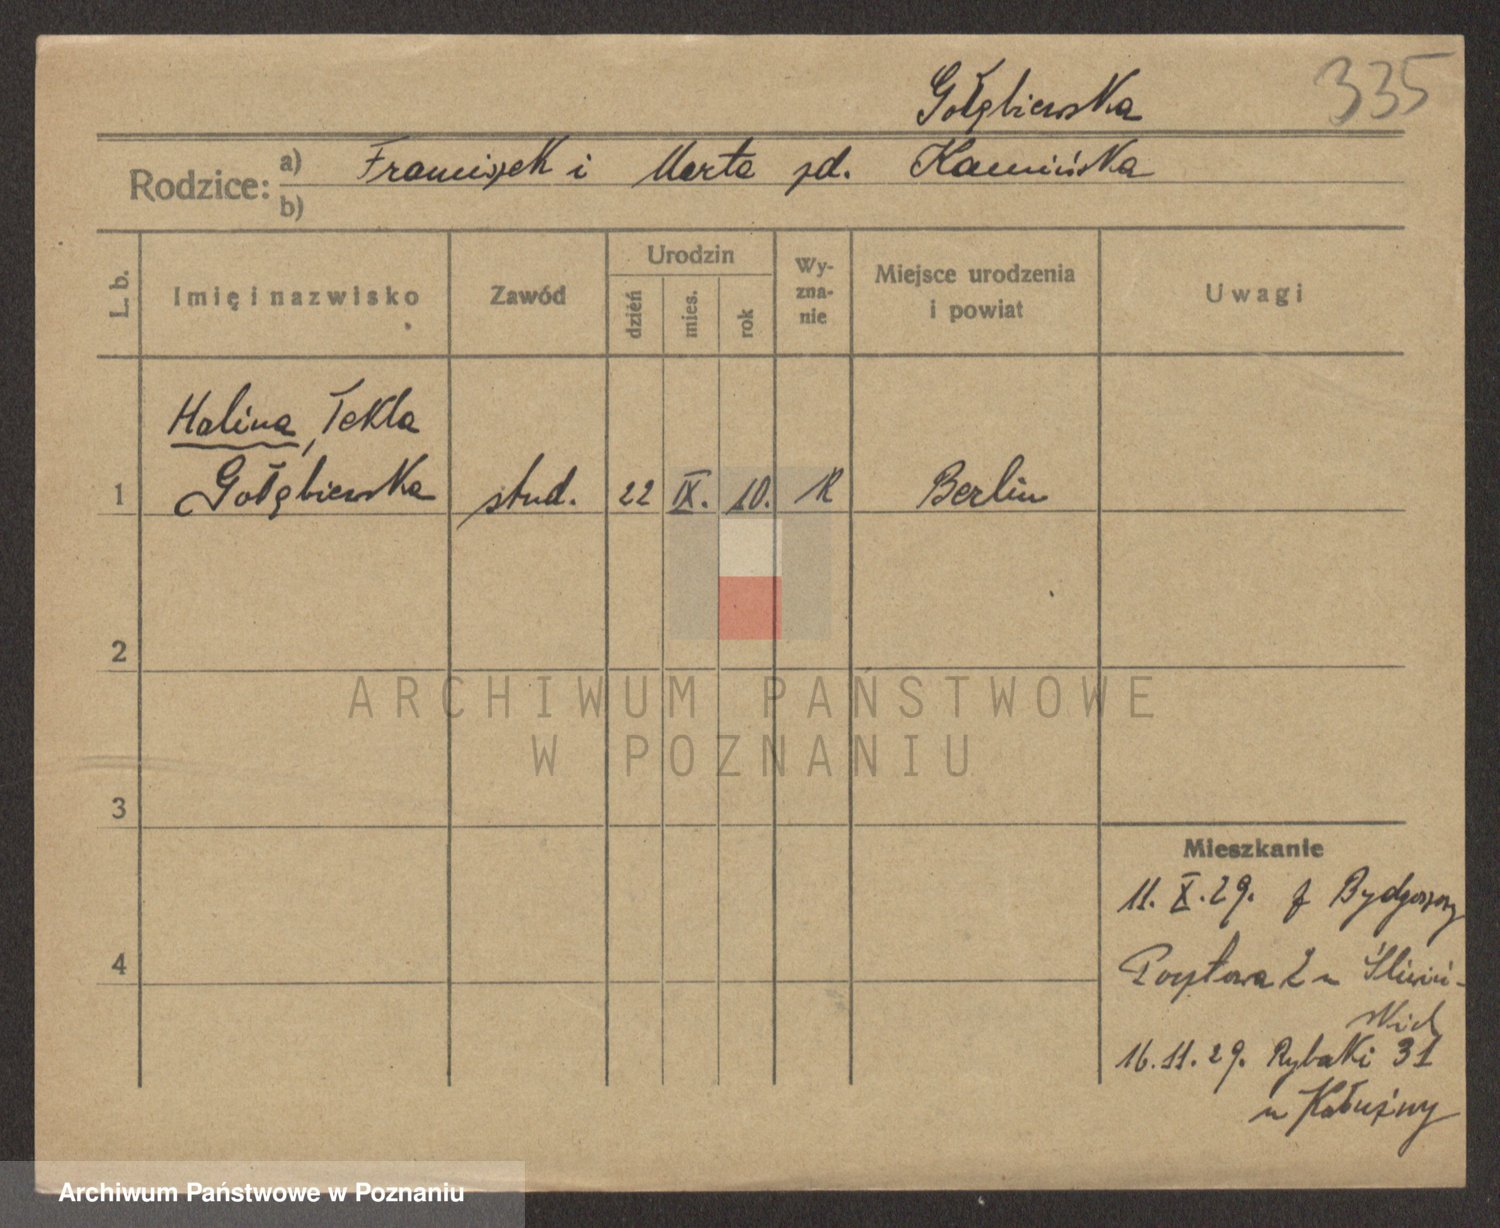 Gołębiewska
335
Rodzice:
a) Franciszek i Marta zd. Kamińska
b)
L. b.
Imię i nazwisko
Zawód
Urodzin
dzień
mies.
rok
Wy-
zna-
nie
Miejsce urodzenia
i powiat
Uwagi
Halina, Tekla
1 Gołębiewska stud. 22 IX. 10. R Berlin
2
ARCHIWUM PAŃSTWOWE
W POZNANIU
3
Mieszkanie
11. X. 29. z Bydgoszczy
4
Pocztowa 2 u Śliwiń-
skich
16.11.29. Rybaki 31
u Kałużny
Archiwum Państwowe w Poznaniu